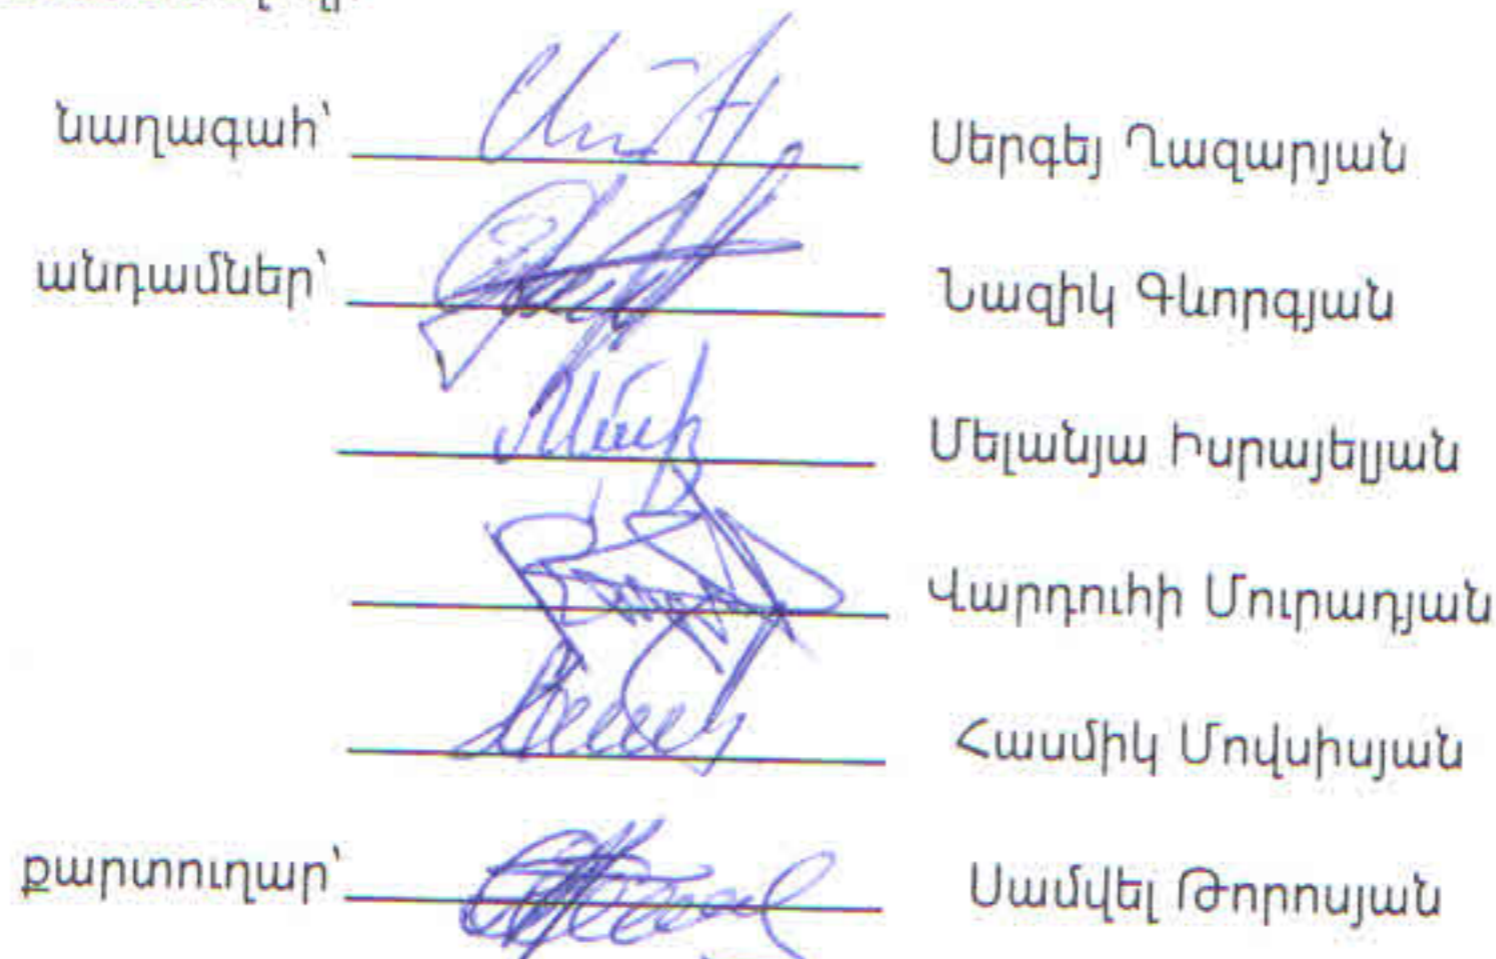 նաղագահ՝ Սերգեյ Ղազարյան
անդամներ՝ Նազիկ Գևորգյան
Մելանյա Իսրայելյան
Վարդուհի Մուրադյան
Հասմիկ Մովսիսյան
քարտուղար՝ Սամվել Թորոսյան